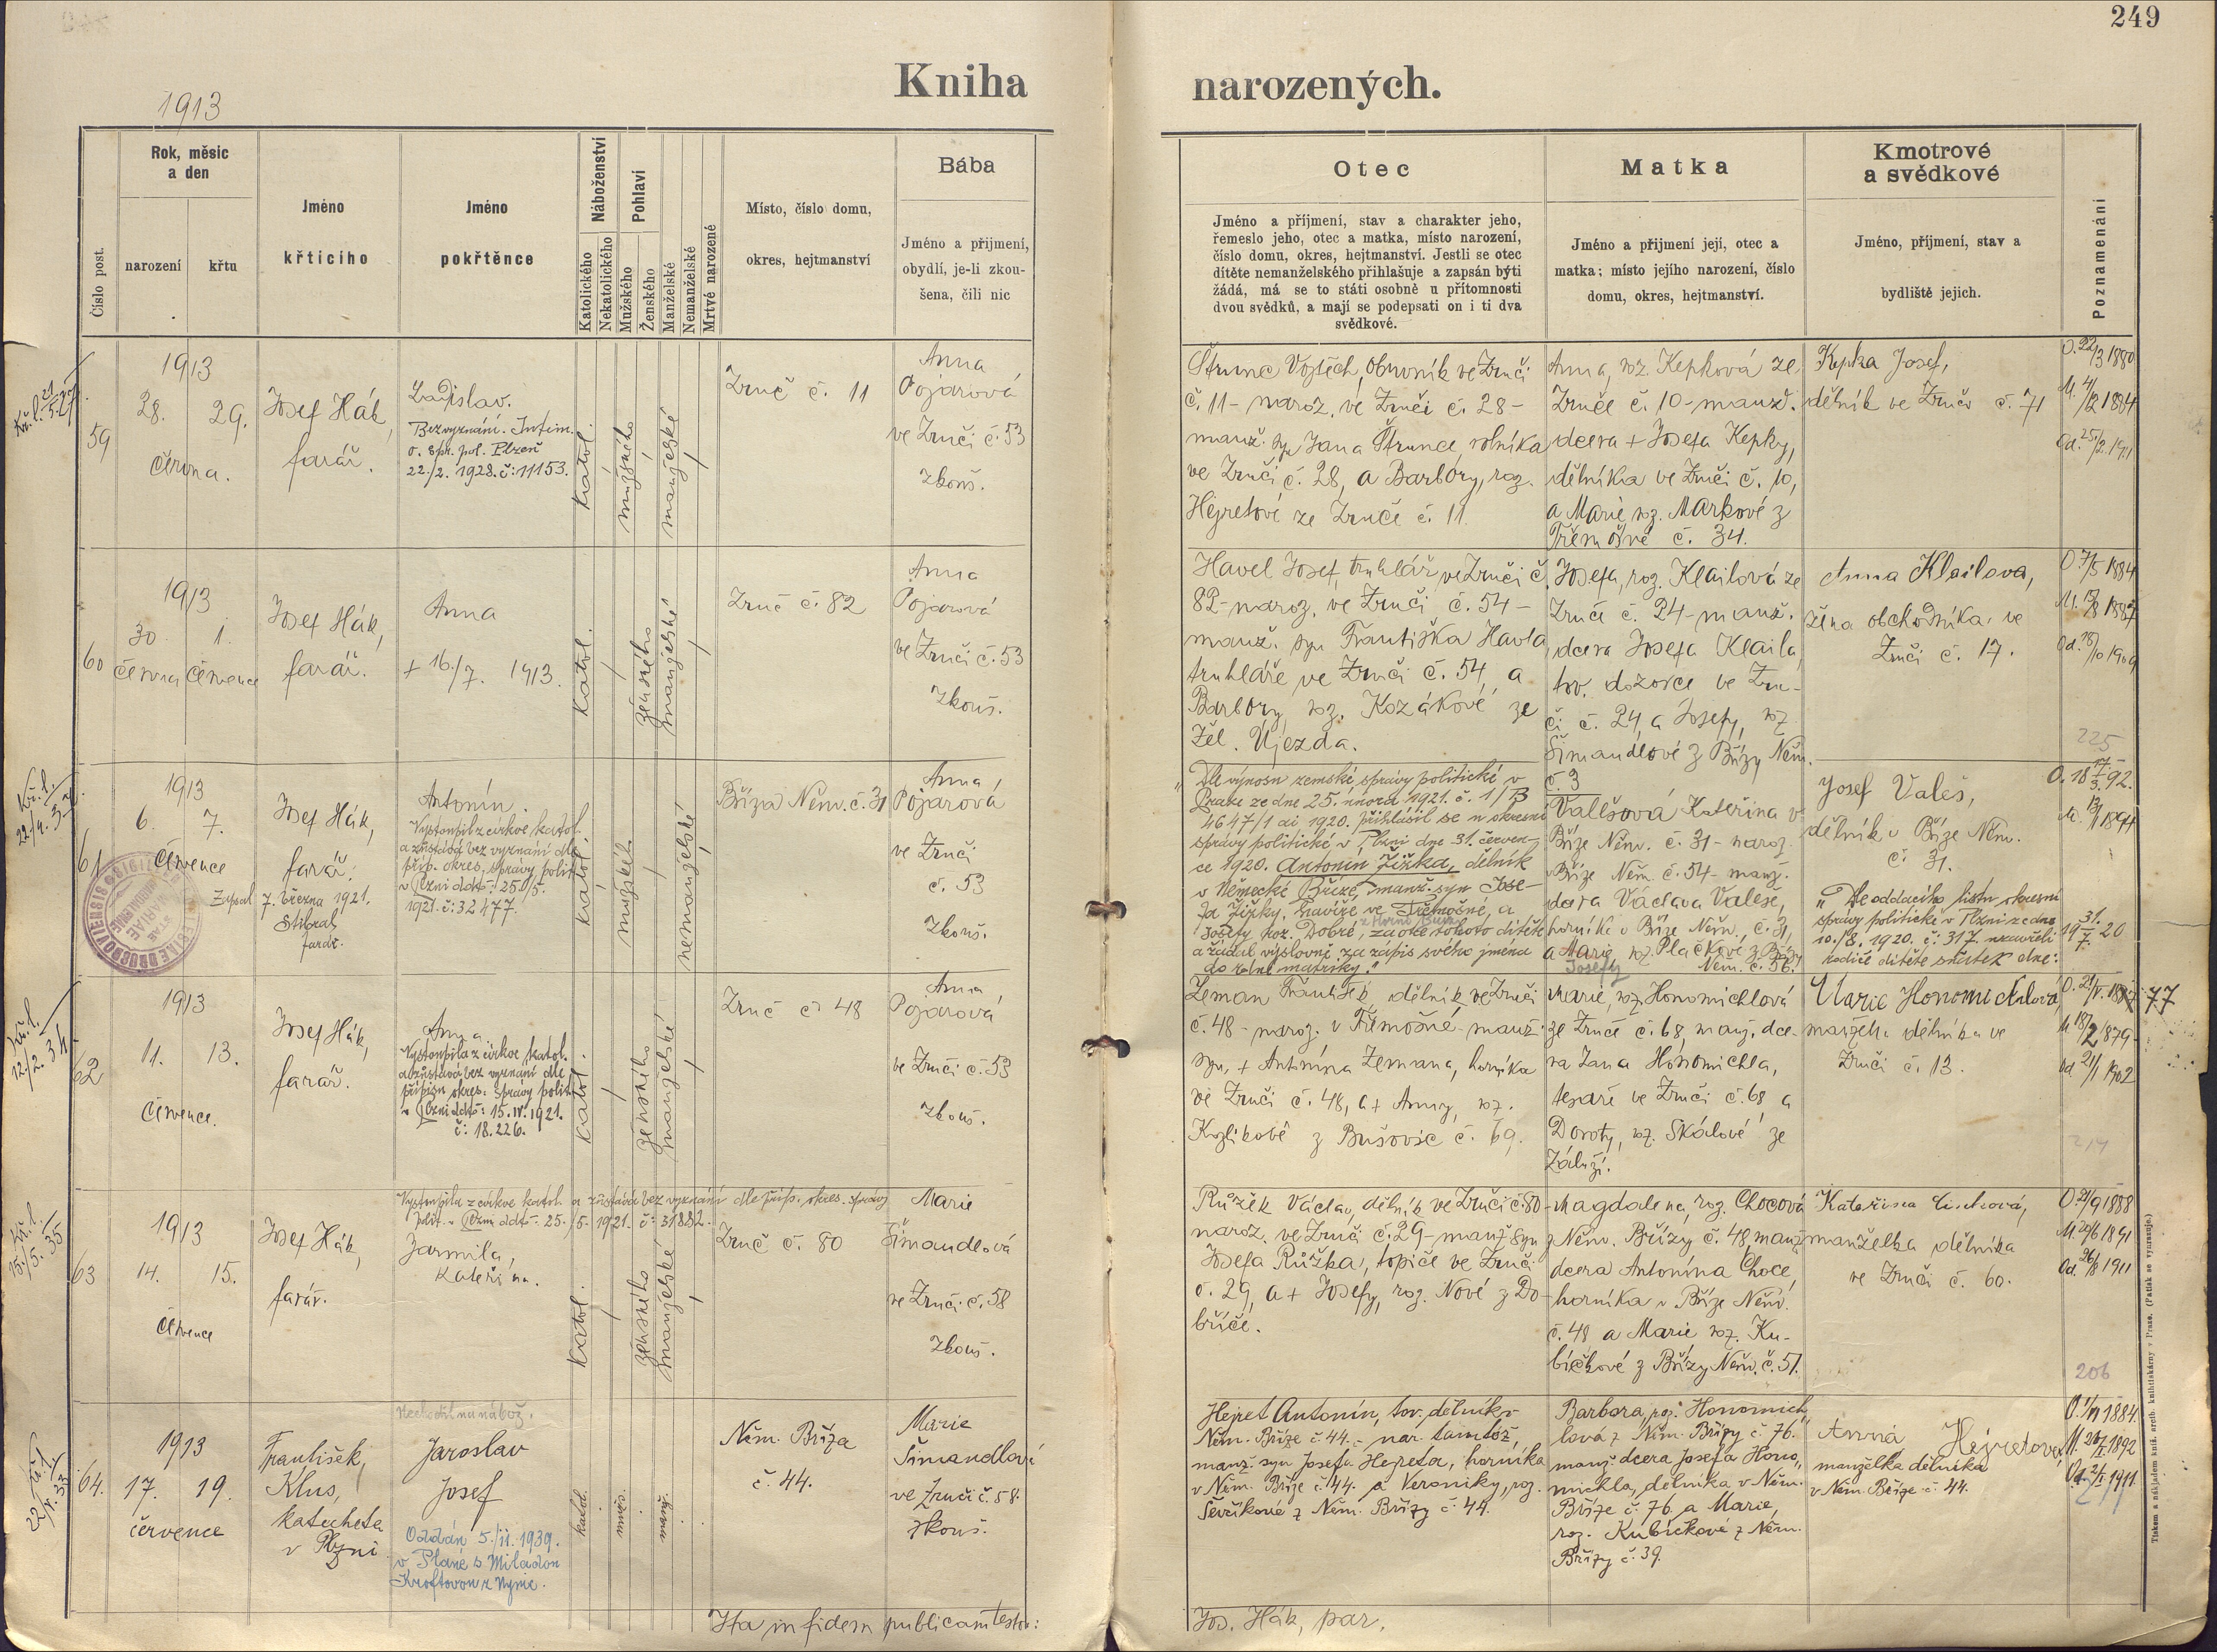 249
Kniha narozených.
1913
Číslo post.
Rok, měsíc
a den
narození
křtu
Jméno
křticího
Jméno
pokřtěnce
Náboženství
Katolického
Nekatolického
Pohlaví
Mužského
Ženského
Manželské
Nemanželské
Mrtvě narozené
Místo, číslo domu,
okres, hejtmanství
Bába
Jméno a přijmení,
obydlí, je-li zkou-
šena, čili nic
Otec
Jméno a příjmení, stav a charakter jeho,
řemeslo jeho, otec a matka, místo narození,
číslo domu, okres, hejtmanství. Jestli se otec
dítěte nemanželského přihlašuje a zapsán býti
žádá, má se to státi osobně u přítomnosti
dvou svědků, a mají se podepsati on i ti dva
svědkové.
Matka
Jméno a přijmení její, otec a
matka; místo jejího narození, číslo
domu, okres, hejtmanství.
Kmotrové
a svědkové
Jméno, příjmení, stav a
bydliště jejich.
Poznamenání
59
1913
28. 29.
června.
Josef Hák,
farář.
Ladislav.
Bezvyznání. Intim.
o. spr. pol. Plzeň
22./2. 1928. č: 11153.
katol.
mužského
manželské
Zruč č. 11
Anna
Pojarová
ve Zruči č. 53
zkouš.
Štrunc Vojtěch, obuvník ve Zruči
č. 11 - naroz. ve Zruči č. 28 -
manž. syn Jana Štrunce, rolníka
ve Zruči č. 28, a Barbory, roz.
Hejretové ze Zruče č. 11.
Anna, roz. Kepková ze
Zruče č. 10 - manž.
dcera + Josefa Kepky,
dělníka ve Zruči č. 10,
a Marie, roz. Markové z
Třemošné č. 34.
Kepka Josef,
dělník ve Zruči č. 71
O. 22/3 1880
M. 4/12 1884
Od. 25/2 1911
60
1913
30. 1.
června července
Josef Hák,
farář.
Anna
+ 16./7. 1913.
katol.
ženského
manželské
Zruč č. 82
Anna
Pojarová
ve Zruči č. 53
zkouš.
Havel Josef, truhlář ve Zruči č.
82 - naroz. ve Zruči č. 54 -
manž. syn Františka Havla,
truhláře ve Zruči č. 54, a
Barbory, roz. Kozákové ze
Žel. Újezda.
Josefa, roz. Klailová ze
Zruče č. 24 - manž.
dcera Josefa Klaila,
tov. dozorce ve Zru-
či č. 24, a Josefy, roz.
Šimandlové z Břízy Něm.
č. 3
Anna Klailova,
žena obchodníka ve
Zruči č. 17.
225
61
1913
6. 7.
července
Josef Hák,
farář.
Zapsal 7. března 1921.
Stibral
farář.
Antonín.
Vystoupil z církve katol.
a zůstává bez vyznání dle
příp. okres. správy polit.
v Plzni ddto: 25./5.
1921. č: 32477.
katol.
mužské
nemanželské
Bříza Něm. č. 31
Anna
Pojarová
ve Zruči
č. 53
Zkouš.
„Dle výnosu zemské správy politické v
Praze ze dne 25. února 1921. č. 1/B
4647/1 ai 1920. přihlásil se u okresní
správy politické v Plzni dne 31. červen-
ce 1920. Antonín Žižka, dělník
v Německé Bříze, manž. syn Jose-
fa Žižky, havíře ve Třemošné, a
Josefy roz. Dobré, za otce tohoto dítěte
a žádal výslovně za zápis svého jména
do zdní matriky."
Valešová Kateřina v
Bříze Něm. č. 31 - naroz.
v Bříze Něm. č. 54 - manž.
dcera Václava Valeše,
horníka v Bříze Něm., č. 31,
a Marie roz. Plačkové z Břízy
Josefy Něm. č. 56.
Josef Valeš,
dělník v Bříze Něm.
č. 31.
„Dle oddacího listu okresní
správy politické v Plzni ze dne
10./8. 1920. č: 317. uzavřeli
rodiče dítěte sňatek dne:
19 31./7. 20
62
1913
11. 13.
července.
Josef Hák,
farář.
Anna.
Vystoupila z církve katol.
a zůstává bez vyznání dle
přípisu okres. správy polit.
v Plzni ddto: 15. IV. 1921.
č: 18.226.
katol.
ženského
manželské
Zruč č. 48
Anna
Pojarová
ve Zruči č. 53
zkouš.
Zeman František, dělník ve Zruči
č. 48 - naroz. v Třemošné - manž.
syn + Antonína Zemana, horníka
ve Zruči č. 48, a + Anny, roz.
Kozlíkové z Bušovic č. 69.
Marie, roz. Honomichlová
ze Zruče č. 68, manž. dce-
ra Jana Honomichla,
tesaře ve Zruči č. 68 a
Doroty, roz. Skálové ze
Záluží.
Marie Honomichlová,
manželka dělníka ve
Zruči č. 13.
77
M. 18/2 1879
Od. 21/1 1902
214
63
Vystoupila z církve katol. a zůstává bez vyznání dle příp. okres. správy
polit. v Plzni ddto: 25./5. 1921. č: 31882.
1913
14. 15.
července
Josef Hák,
farář.
Jarmila,
Kateřina.
katol.
ženského
manželské
Zruč č. 80
Marie
Šimandlová
ve Zruči č. 58
zkouš.
Růžek Václav, dělník ve Zruči č. 80 -
naroz. ve Zruči č. 29 - manž. syn
Josefa Růžka, topiče ve Zruči
č. 29, a + Josefy, roz. Nové z Do-
bříče.
Magdalena, roz. Chocová
z Něm. Břízy č. 48, manž.
dcera Antonína Choce,
horníka v Bříze Něm.
č. 48 a Marie roz. Ku-
bíčkové z Břízy Něm. č. 51.
Kateřina
manželka dělníka
ve Zruči č. 60.
O. 21/9 1888
M. 20/6 1891
Od. 26/8 1911
206
64.
1913
17. 19.
července
František,
Klus,
katecheta
v Plzni
Nechodil na nábož.
Jaroslav
Josef
Oddán 5./11. 1939.
v Plané s Miladou
Kroftovou z Nynic.
katol.
muž.
manž.
Něm. Bříza
č. 44.
Marie
Šimandlová
ve Zruči č. 58.
zkouš.
Hejret Antonín, tov. dělník v
Něm. Bříze č. 44. - nar. tamtéž
manž. syn Josefa Hejreta, horníka
v Něm. Bříze č. 44. a Veroniky, roz.
Ševčíkové z Něm. Břízy č. 44.
Barbora, roz. Honomich-
lová z Něm. Břízy č. 76.
manž. dcera Josefa Hono-
michla, dělníka v Něm.
Bříze č. 76 a Marie,
roz. Kubíčkové z Něm.
Břízy č. 39.
Anna Hejretova,
manželka dělníka
v Něm. Bříze č. 44.
Ita in fidem publicam testor:
Jos. Hák, par.
Tiskem a nákladem knih. arcib. knihtiskárny v Praze. (Patisk se vyhrazuje.)